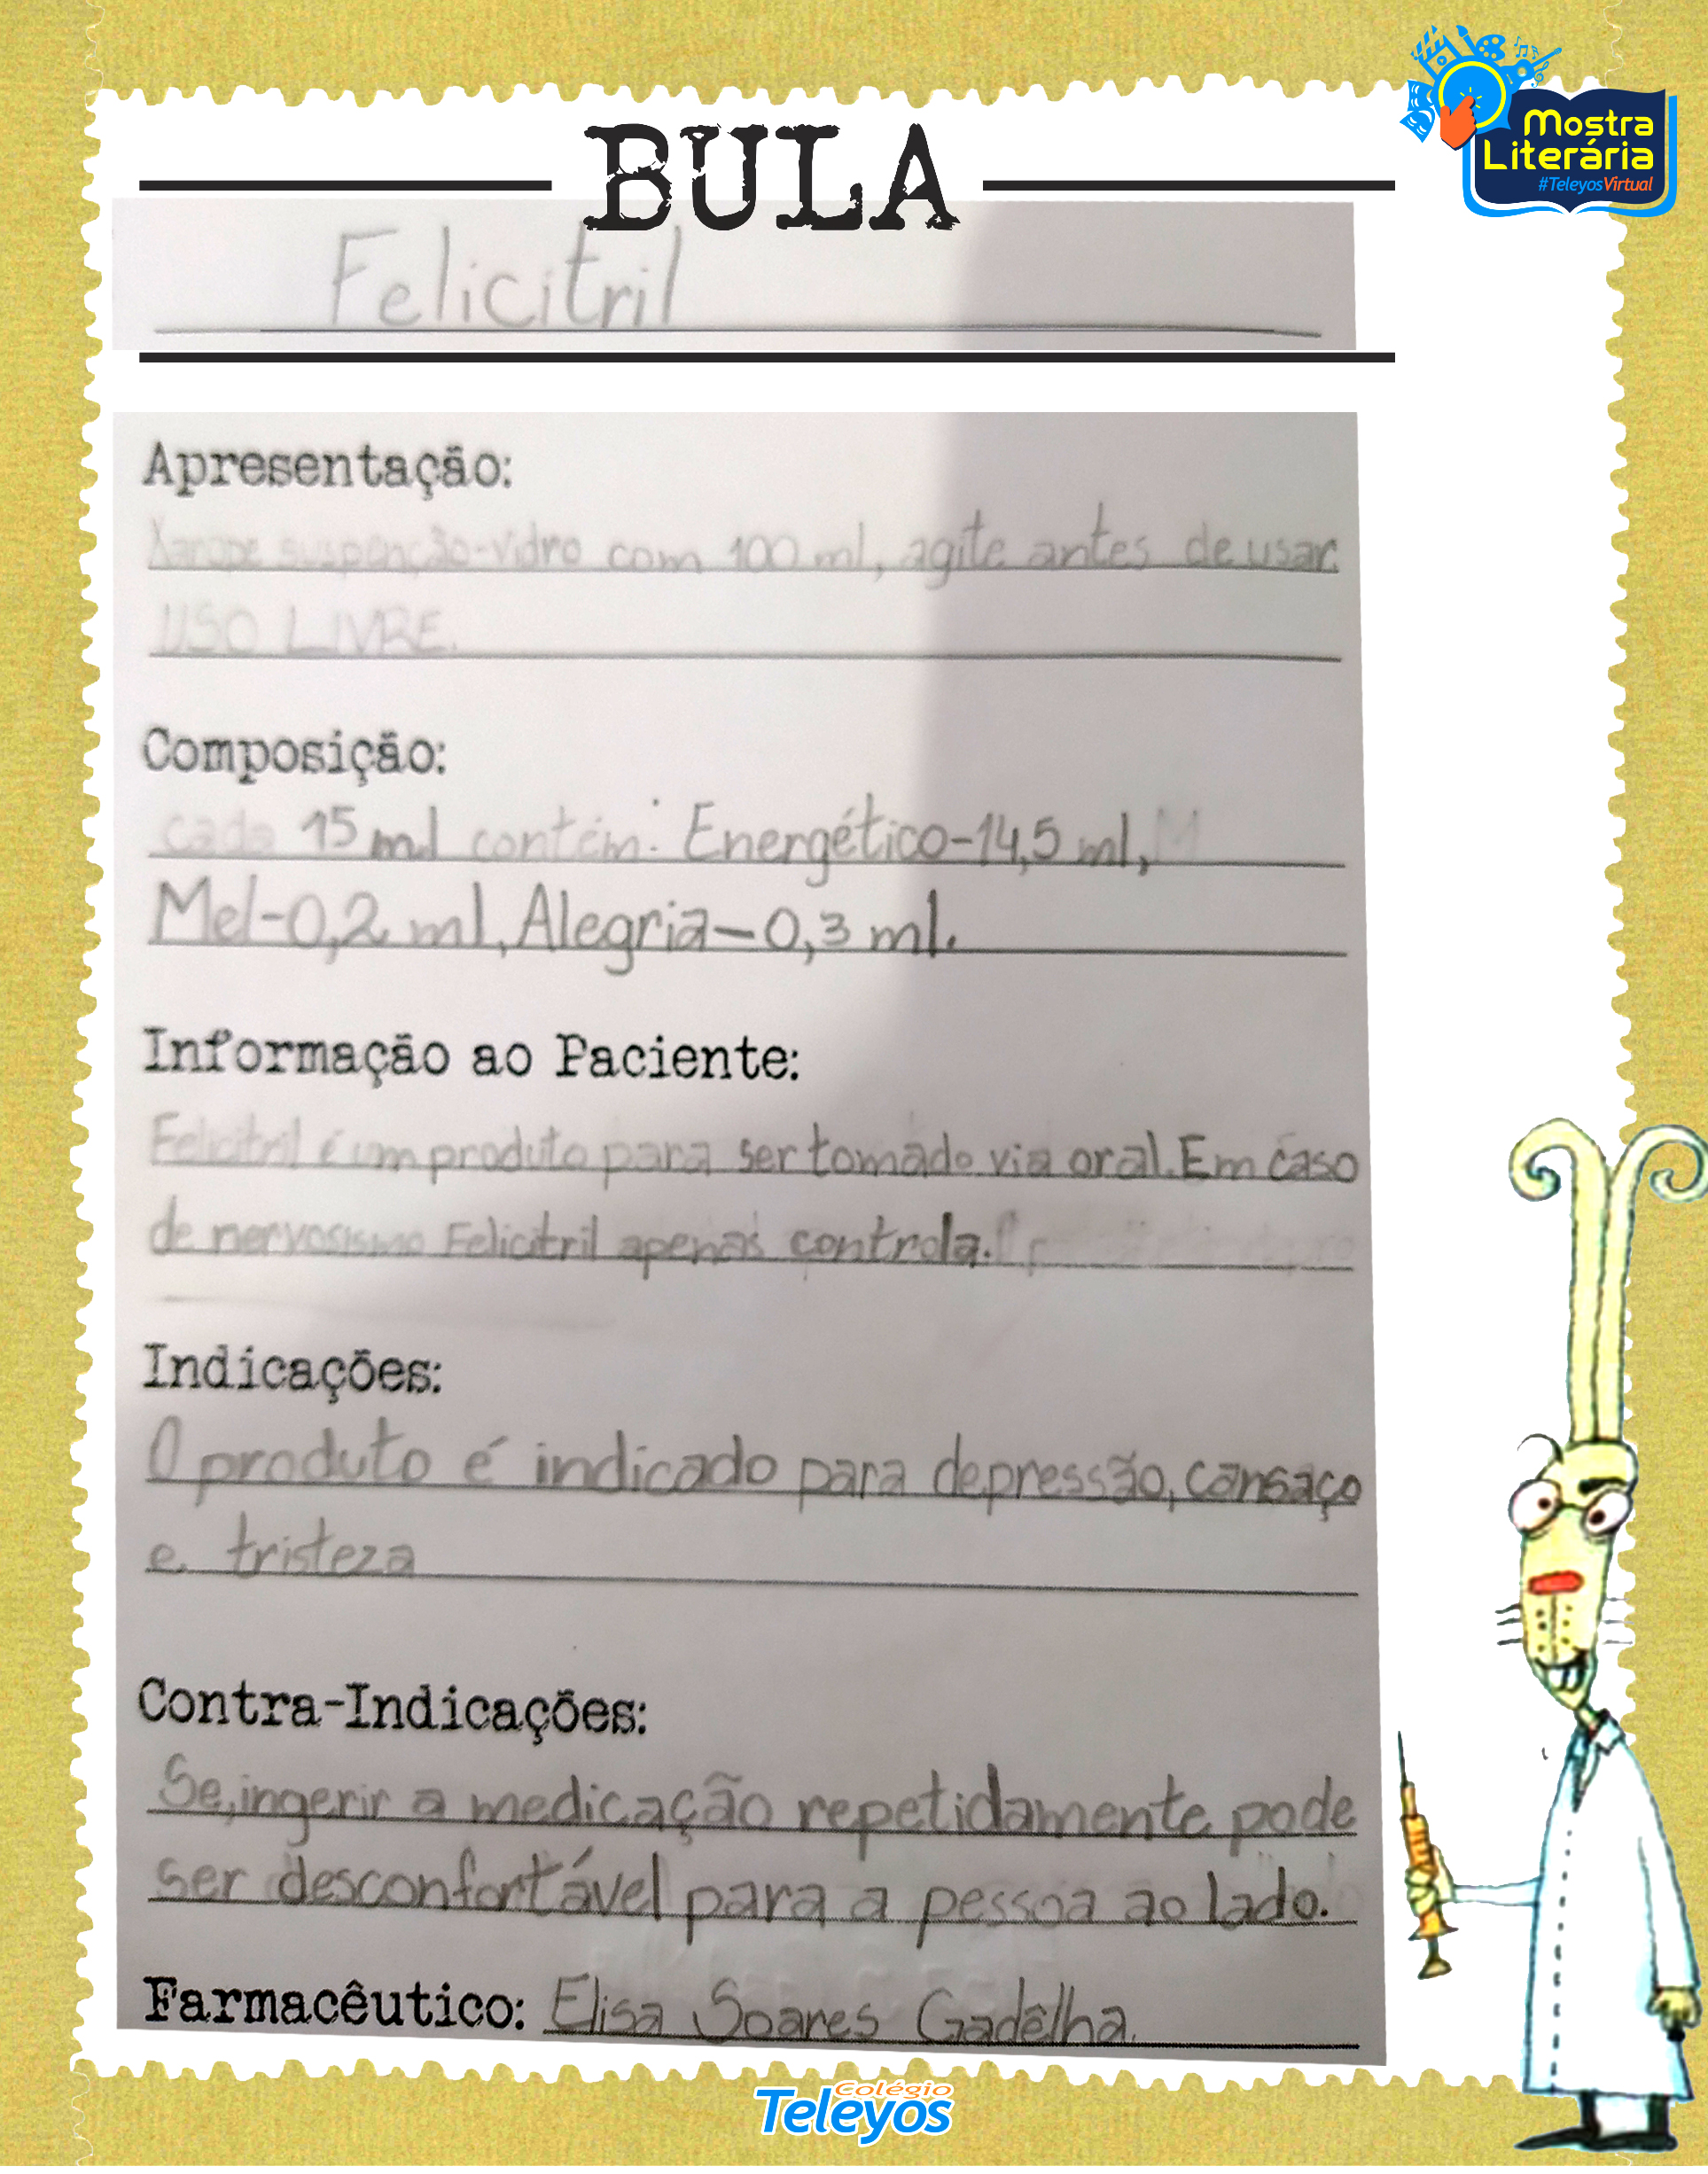 Mostra
Literária
#TeleyosVirtual
BULA
Felicitril
Apresentação:
Xarope suspenção-vidro com 100 ml, agite antes de usar.
USO LIVRE.
Composição:
cada 15 ml contém: Energético-14,5 ml,
Mel-0,2 ml, Alegria-0,3 ml.
Informação ao Paciente:
Felicitril é um produto para ser tomado via oral. Em caso
de nervosismo Felicitril apenas controla.
Indicações:
O produto é indicado para depressão, cansaço
e tristeza
Contra-Indicações:
Se, ingerir a medicação repetidamente pode
ser desconfortável para a pessoa ao lado.
Farmacêutico: Elisa Soares Gadêlha.
Colégio
Teleyos